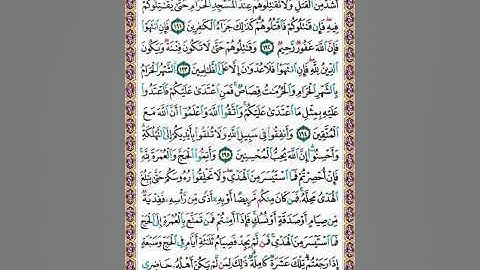 أَشَدُّ مِنَ ٱلْقَتْلِ وَلَا تُقَٰتِلُوهُمْ عِندَ ٱلْمَسْجِدِ ٱلْحَرَامِ حَتَّىٰ يُقَٰتِلُوكُمْ
فِيهِ فَإِن قَٰتَلُوكُمْ فَٱقْتُلُوهُمْ كَذَٰلِكَ جَزَآءُ ٱلْكَٰفِرِينَ ١٩١ فَإِنِ ٱنتَهَوْا۟
فَإِنَّ ٱللَّهَ غَفُورٌ رَّحِيمٌ ١٩٢ وَقَٰتِلُوهُمْ حَتَّىٰ لَا تَكُونَ فِتْنَةٌ وَيَكُونَ
ٱلدِّينُ لِلَّهِ فَإِنِ ٱنتَهَوْا۟ فَلَا عُدْوَٰنَ إِلَّا عَلَى ٱلظَّٰلِمِينَ ١٩٣ ٱلشَّهْرُ ٱلْحَرَامُ
بِٱلشَّهْرِ ٱلْحَرَامِ وَٱلْحُرُمَٰتُ قِصَاصٌ فَمَنِ ٱعْتَدَىٰ عَلَيْكُمْ فَٱعْتَدُوا۟
عَلَيْهِ بِمِثْلِ مَا ٱعْتَدَىٰ عَلَيْكُمْ وَٱتَّقُوا۟ ٱللَّهَ وَٱعْلَمُوٓا۟ أَنَّ ٱللَّهَ مَعَ
ٱلْمُتَّقِينَ ١٩٤ وَأَنفِقُوا۟ فِى سَبِيلِ ٱللَّهِ وَلَا تُلْقُوا۟ بِأَيْدِيكُمْ إِلَى ٱلتَّهْلُكَةِ
وَأَحْسِنُوٓا۟ إِنَّ ٱللَّهَ يُحِبُّ ٱلْمُحْسِنِينَ ١٩٥ وَأَتِمُّوا۟ ٱلْحَجَّ وَٱلْعُمْرَةَ لِلَّهِ
فَإِنْ أُحْصِرْتُمْ فَمَا ٱسْتَيْسَرَ مِنَ ٱلْهَدْىِ وَلَا تَحْلِقُوا۟ رُءُوسَكُمْ حَتَّىٰ يَبْلُغَ
ٱلْهَدْىُ مَحِلَّهُۥ فَمَن كَانَ مِنكُم مَّرِيضًا أَوْ بِهِۦٓ أَذًى مِّن رَّأْسِهِۦ فَفِدْيَةٌ
مِّن صِيَامٍ أَوْ صَدَقَةٍ أَوْ نُسُكٍ فَإِذَآ أَمِنتُمْ فَمَن تَمَتَّعَ بِٱلْعُمْرَةِ إِلَى ٱلْحَجِّ
فَمَا ٱسْتَيْسَرَ مِنَ ٱلْهَدْىِ فَمَن لَّمْ يَجِدْ فَصِيَامُ ثَلَٰثَةِ أَيَّامٍ فِى ٱلْحَجِّ وَسَبْعَةٍ
إِذَا رَجَعْتُمْ تِلْكَ عَشَرَةٌ كَامِلَةٌ ذَٰلِكَ لِمَن لَّمْ يَكُنْ أَهْلُهُۥ حَاضِرِى